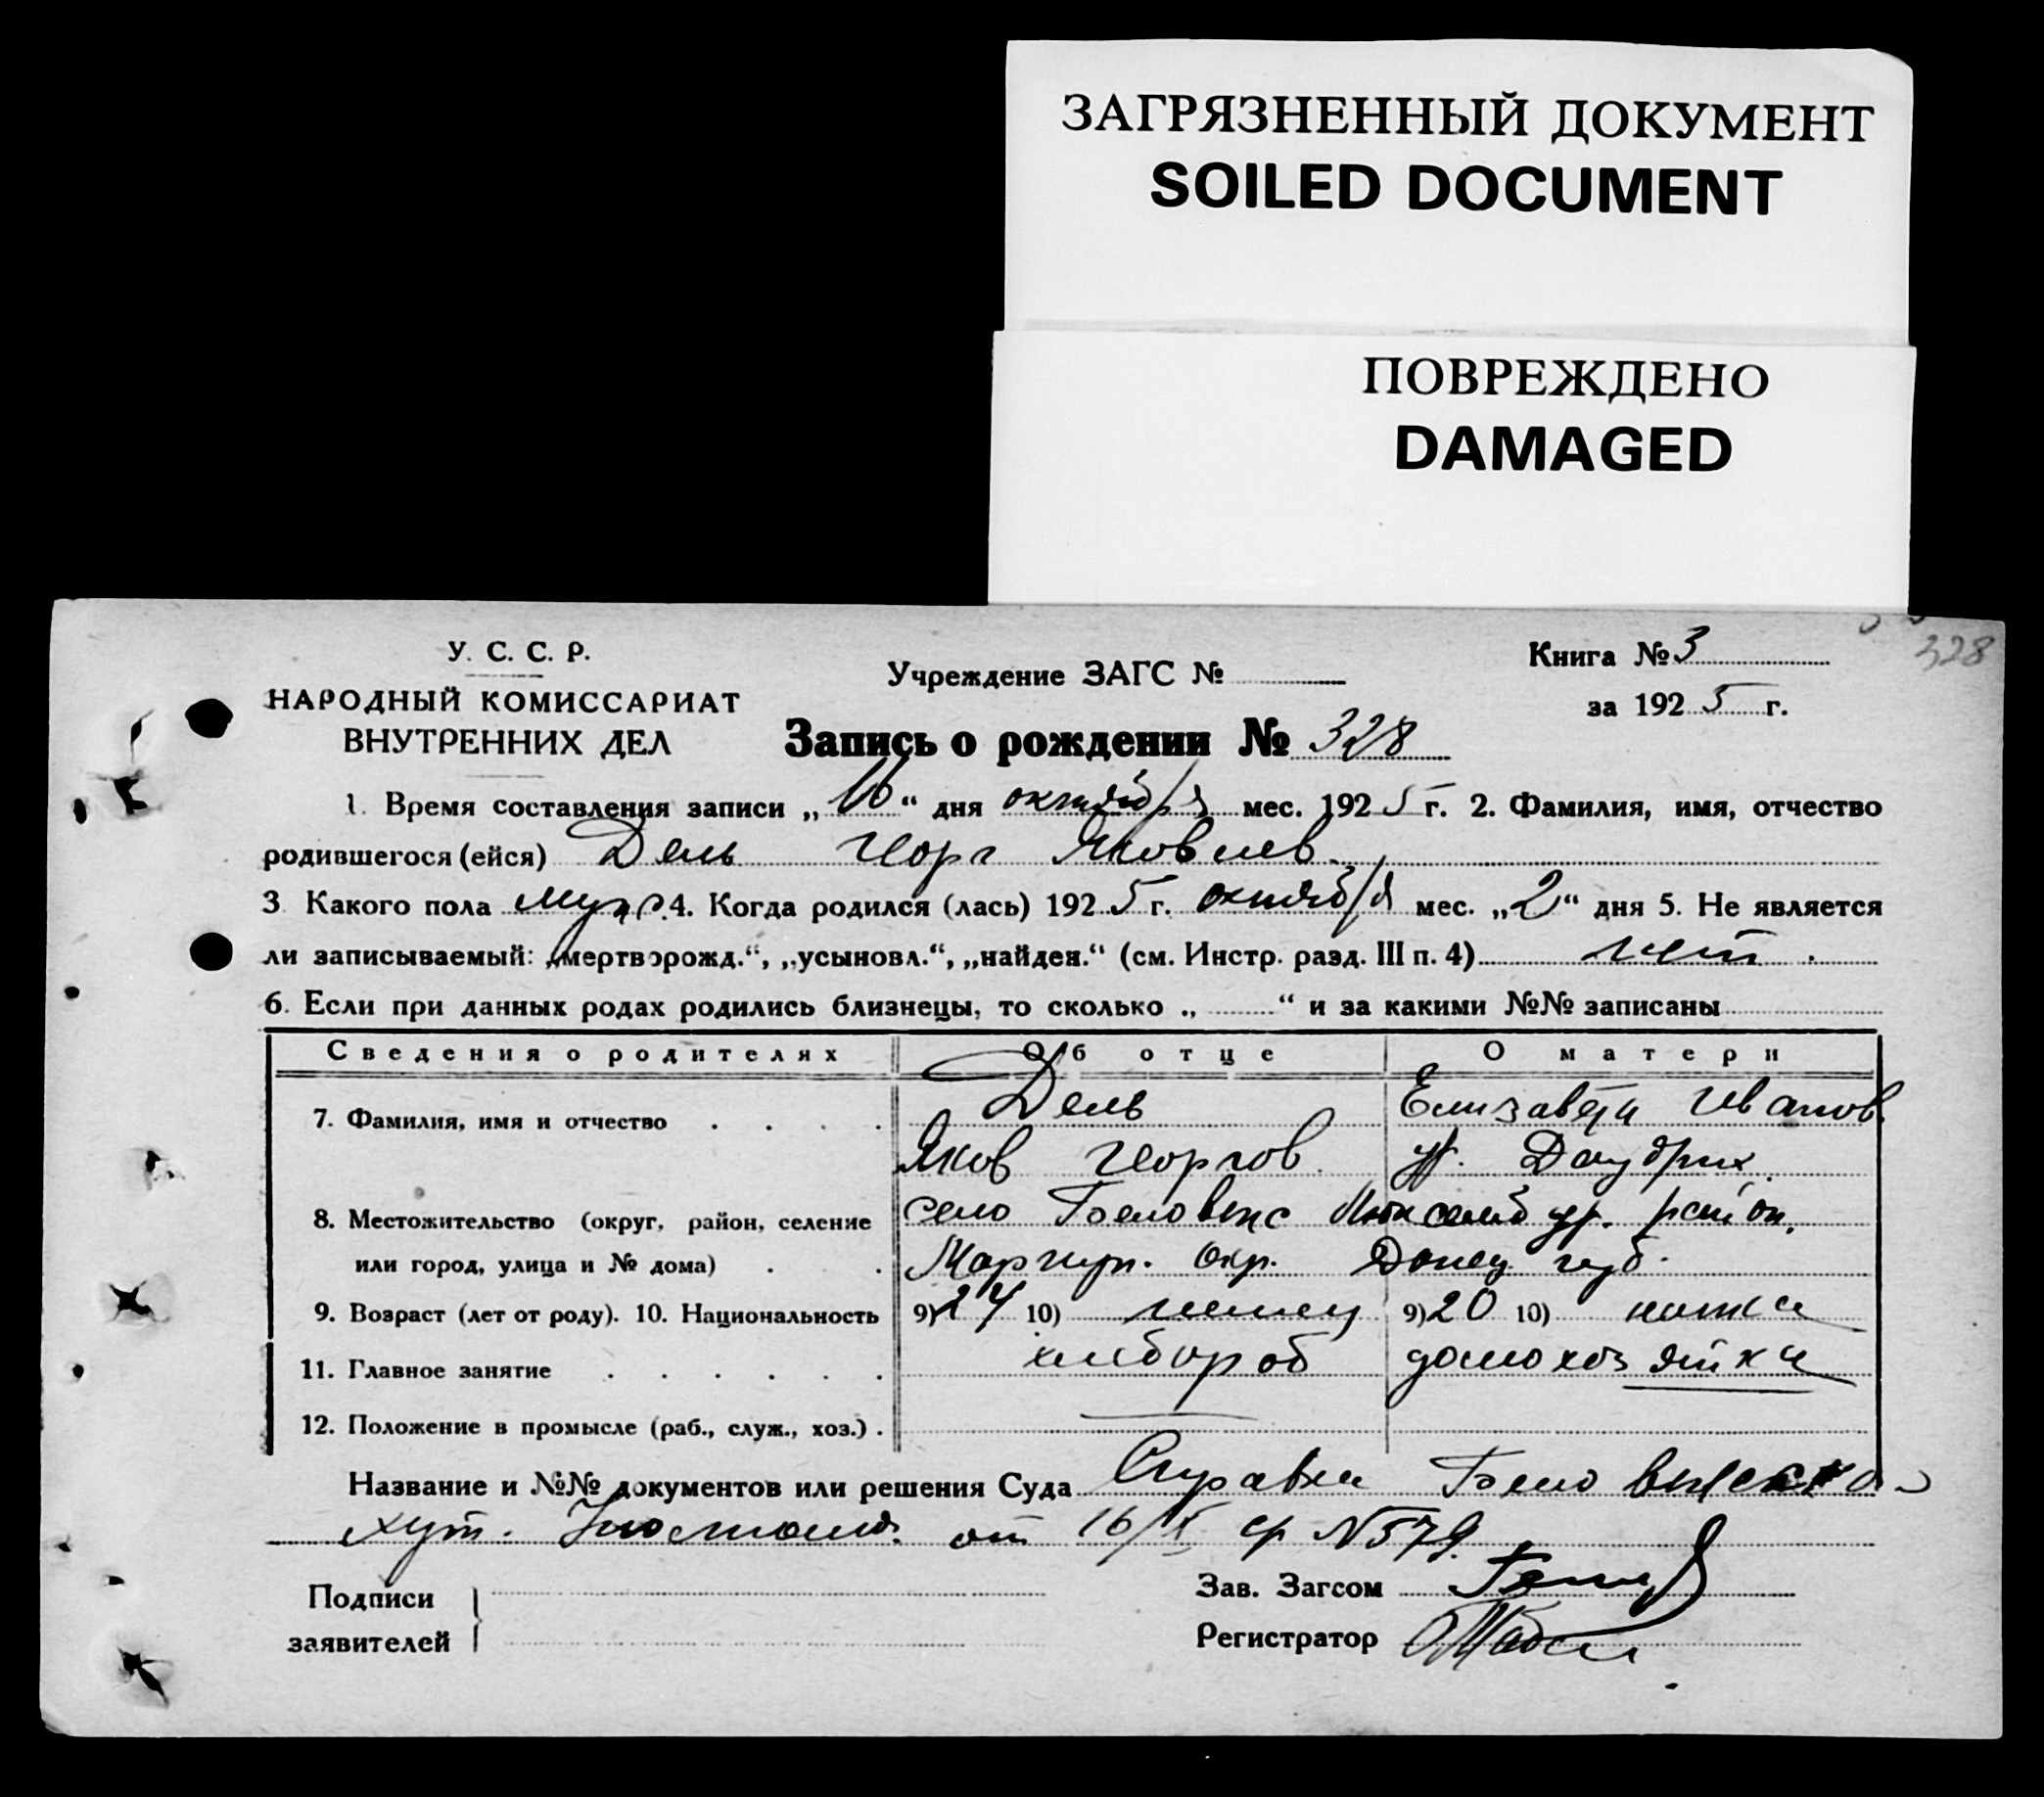 ЗАГРЯЗНЕННЫЙ ДОКУМЕНТ
SOILED DOCUMENT
ПОВРЕЖДЕНО
DAMAGED
328
У. С. С. Р.
НАРОДНЫЙ КОМИССАРИАТ
ВНУТРЕННИХ ДЕЛ
Учреждение ЗАГС №
Книга № 3
за 1925 г.
Запись о рождении № 328
1. Время составления записи „16“ дня октября мес. 1925 г. 2. Фамилия, имя, отчество
родившегося (ейся) Дель Георг Яковлев.
3 Какого пола муж. 4. Когда родился (лась) 1925 г. октября мес. „2“ дня 5. Не является
ли записываемый: „мертворожд.“, „усыновл.“, „найден.“ (см. Инстр. разд. III п. 4) нет.
6. Если при данных родах родились близнецы, то сколько „ “ и за какими №№ записаны
Сведения о родителях Об отце О матери
7. Фамилия, имя и отчество Дель Елизавета Иванов.
Яков Георгов. ур. Даубрих.
8. Местожительство (округ, район, селение село Беловеж Люксембур. район,
или город, улица и № дома) Мариуп. окр. Донец губ.
9. Возраст (лет от роду). 10. Национальность 9) 24 10) немец 9) 20 10) немка
11. Главное занятие хлебороб домохозяйка
12. Положение в промысле (раб., служ., хоз.).
Название и №№ документов или решения Суда Справка
хут. от 16/X с/г N579.
Подписи
заявителей
Зав. Загсом
Регистратор